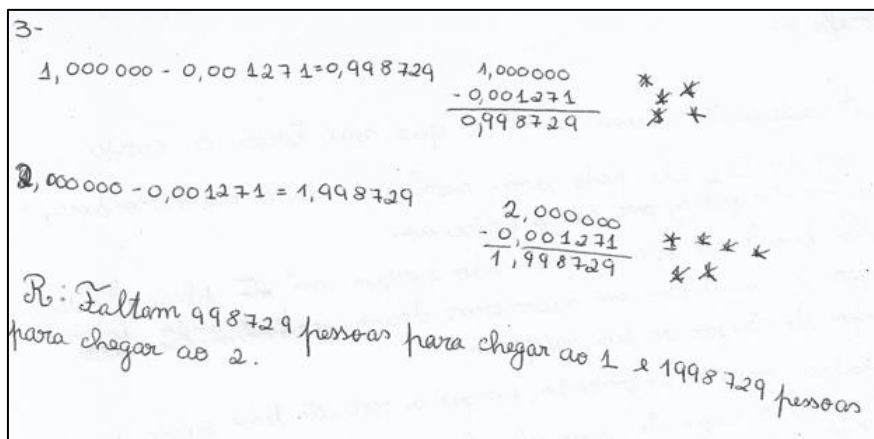 3-
1,000 000 - 0,001271=0,998729
1,000000
- 0,001271
0,998729
2,000000 - 0,001271 = 1,998729
2,000000
- 0,001271
1,998729
R: Faltam 998729 pessoas para chegar ao 1 e 1998729 pessoas
para chegar ao 2.